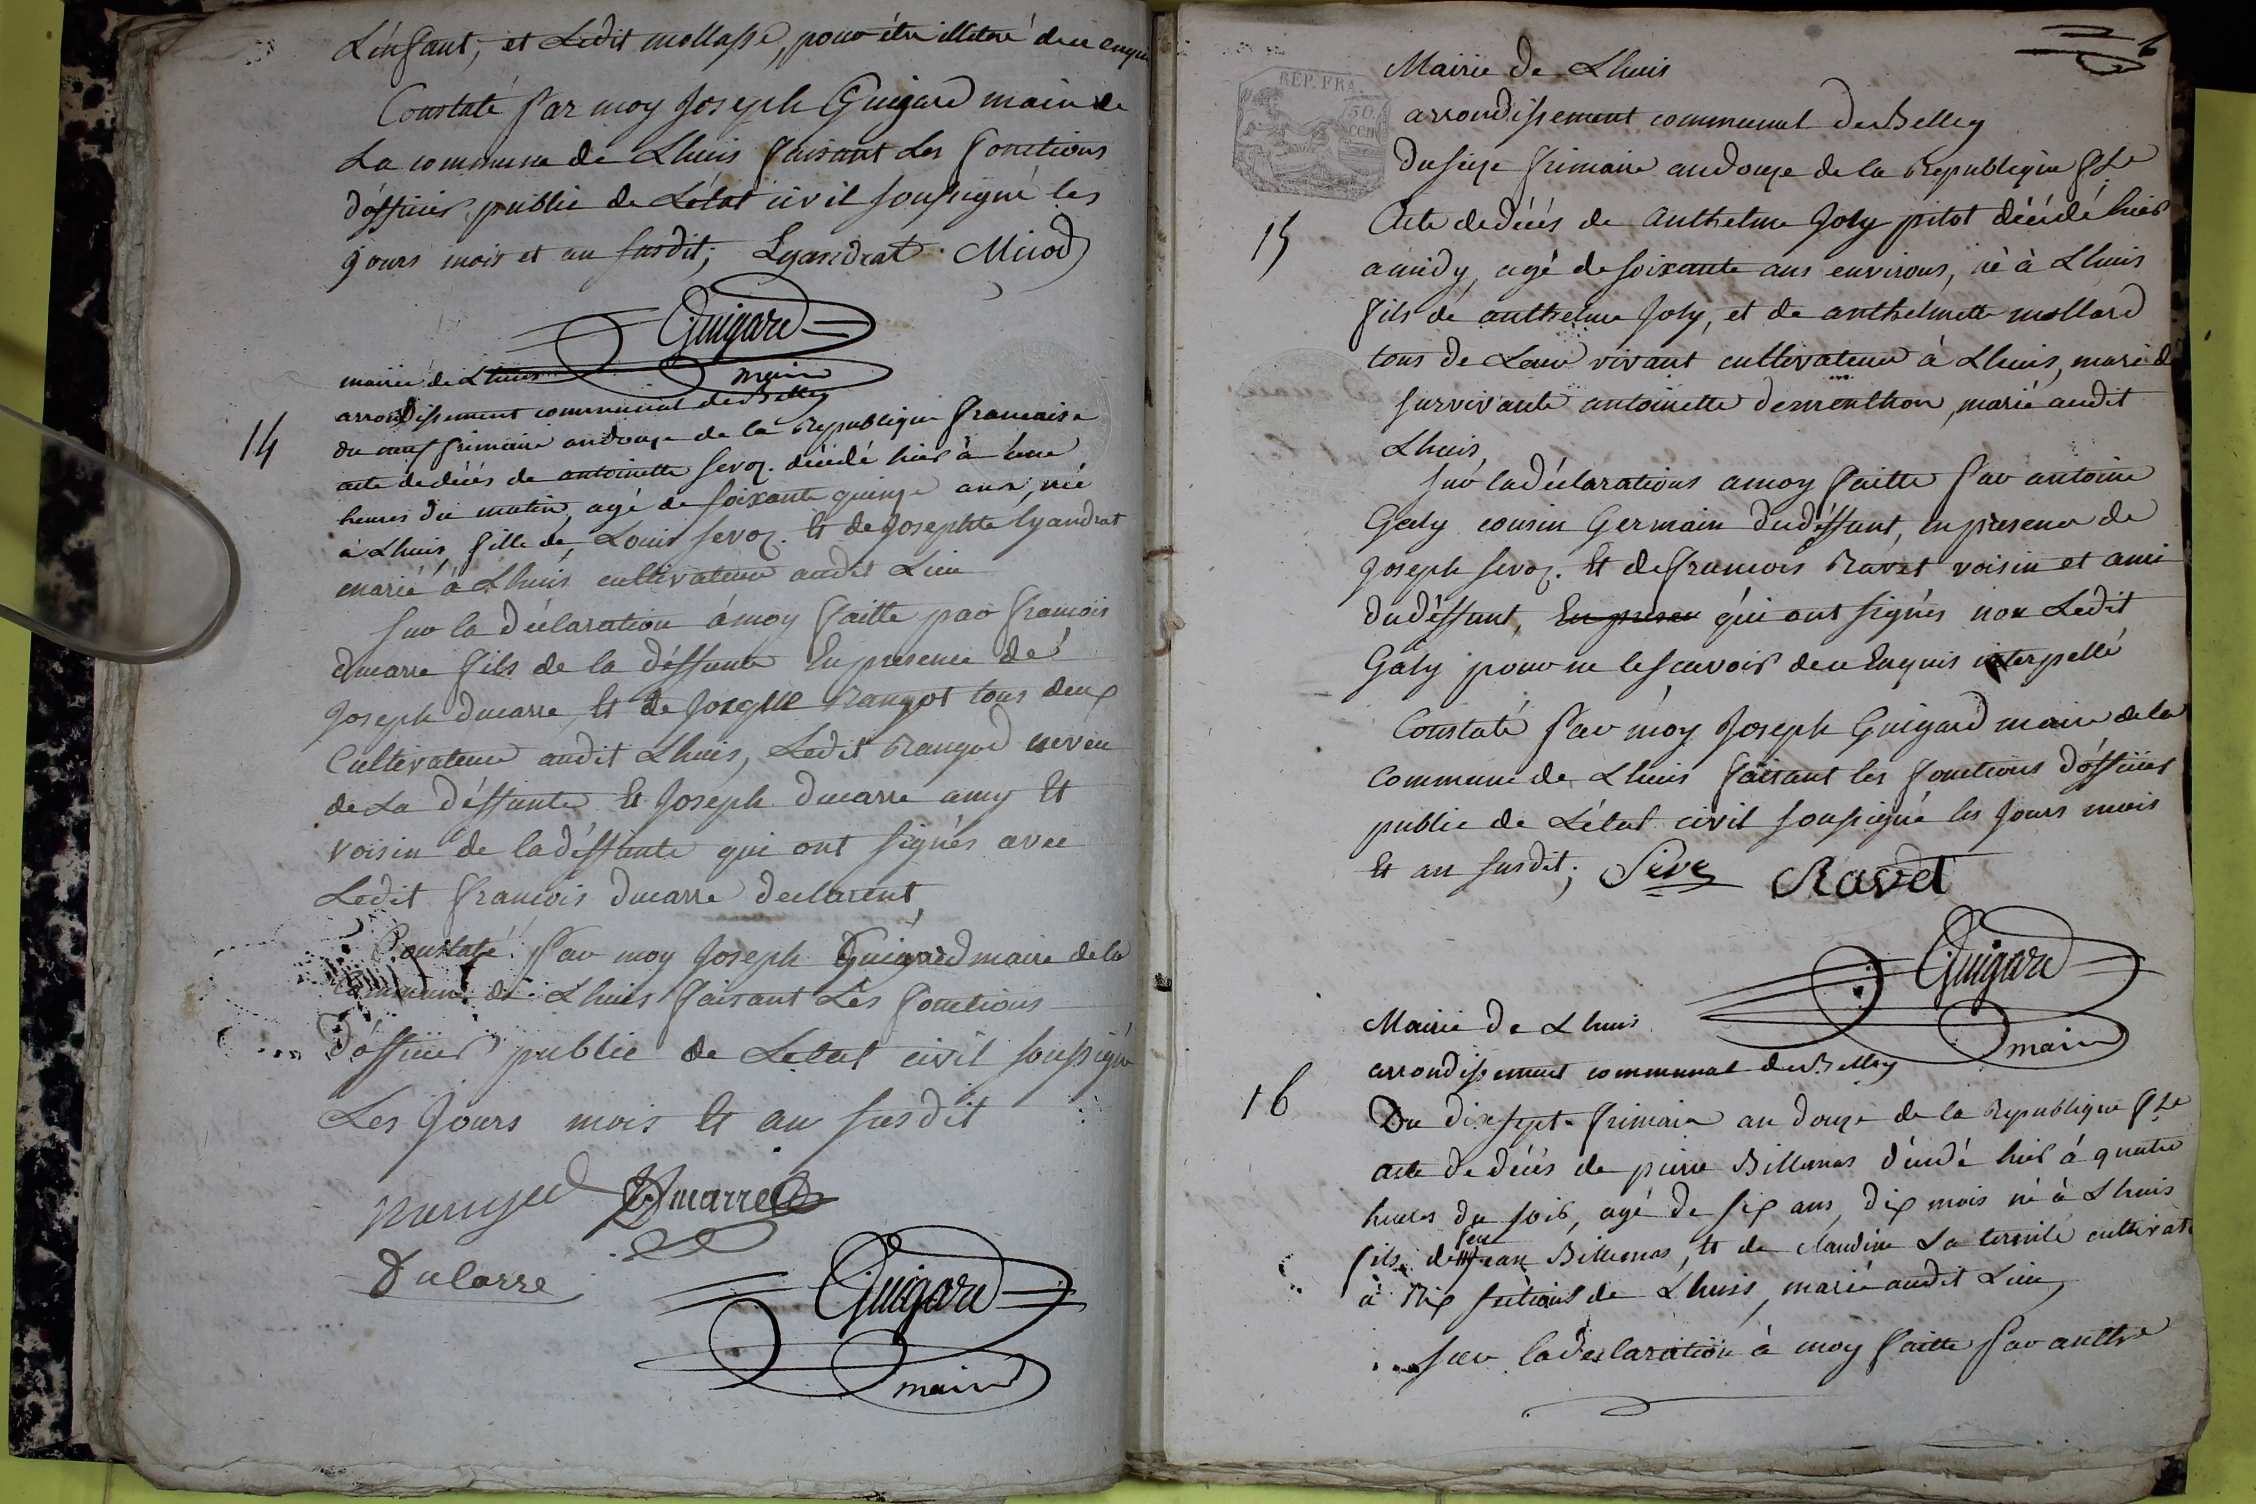 L'énfant, et Ledit mollasse, pour étre illetré de ce enquis
Constaté Par moy Joseph Guigard maire de
La commune de Lhuis faisant Les fonctions
d'officier public de L'état civil soussigné les
jours mois et an susdit; Lyandrat Miiod
Guigard
maire
mairie de Lhuis
arrondissement communal de Belley
14
du neuf frimaire an douze de la Republique francaise
acte de décés de antoinette Servoz. décédé hier à
heures du matin, agé de soixante quinze ans, née
à Lhuis, fille de, Louis Servoz. Et de Josephte Lyandrat
marié à Lhuis cultivateur audit Lieu
Sur la déclaration à moy faitte par francois
ducarre fils de la déffunte En presence de
Joseph ducarre, Et de Joseph Rangot tous deux
Cultivateur audit Lhuis, Ledit Rangod neveu
de La déffunte Et Joseph ducarre amy Et
voisin de la déffunte qui ont signés avec
Ledit francois ducarre declarent,
Constaté Par moy Joseph Guigard maire de la
Commune de Lhuis faisant Les fonctions
d'officier public de Letat civil soussigné
Les Jours mois Et an susdit
Rangod Ducarre
Ducarre
Guigard
maire
6
Mairie de Lhuis
REP. FRA.
50.
CEN
arrondissement communal de Belley
du seize frimaire an douze de la Republique fse
15
Acte de décés de Anthelme Joly pitot décédé hier
a midy, agé de soixante ans environs, né à Lhuis
fils de anthelme Joly, et de anthelmette mollard
tous de Leur vivant cultivateur à Lhuis, mari de
survivante antoinette dementhon, marié audit
Lhuis,
Sur la déclarations a moy faitte Par antoine
Galy cousin Germain du déffunt, En presence de
Joseph Servoz. Et de francois Ravet voisin et ami
du déffunt, En presen qui ont signés non Ledit
Galy pour ne le scavoir de ce Enquis interpellé
Constaté Par moy Joseph Guigard maire de la
Commune de Lhuis faisant les fonctions d'officier
public de L'état civil soussigné les Jours mois
Et an susdit; Servoz Ravet
Guigard
maire
Mairie de Lhuis
arrondissement communal de Belley
16
Du dix sept frimaire an douze de la Republique fse
acte de décés de pierre Billiemas décédé hier à quatre
heures du soir, agé de six ans, dix mois né à Lhuis
fils de feu Jean Billiemas, Et de claudine La
à Rix sections de Lhuis, marié audit Lieu,
Sur la declaration à moy faitte Par